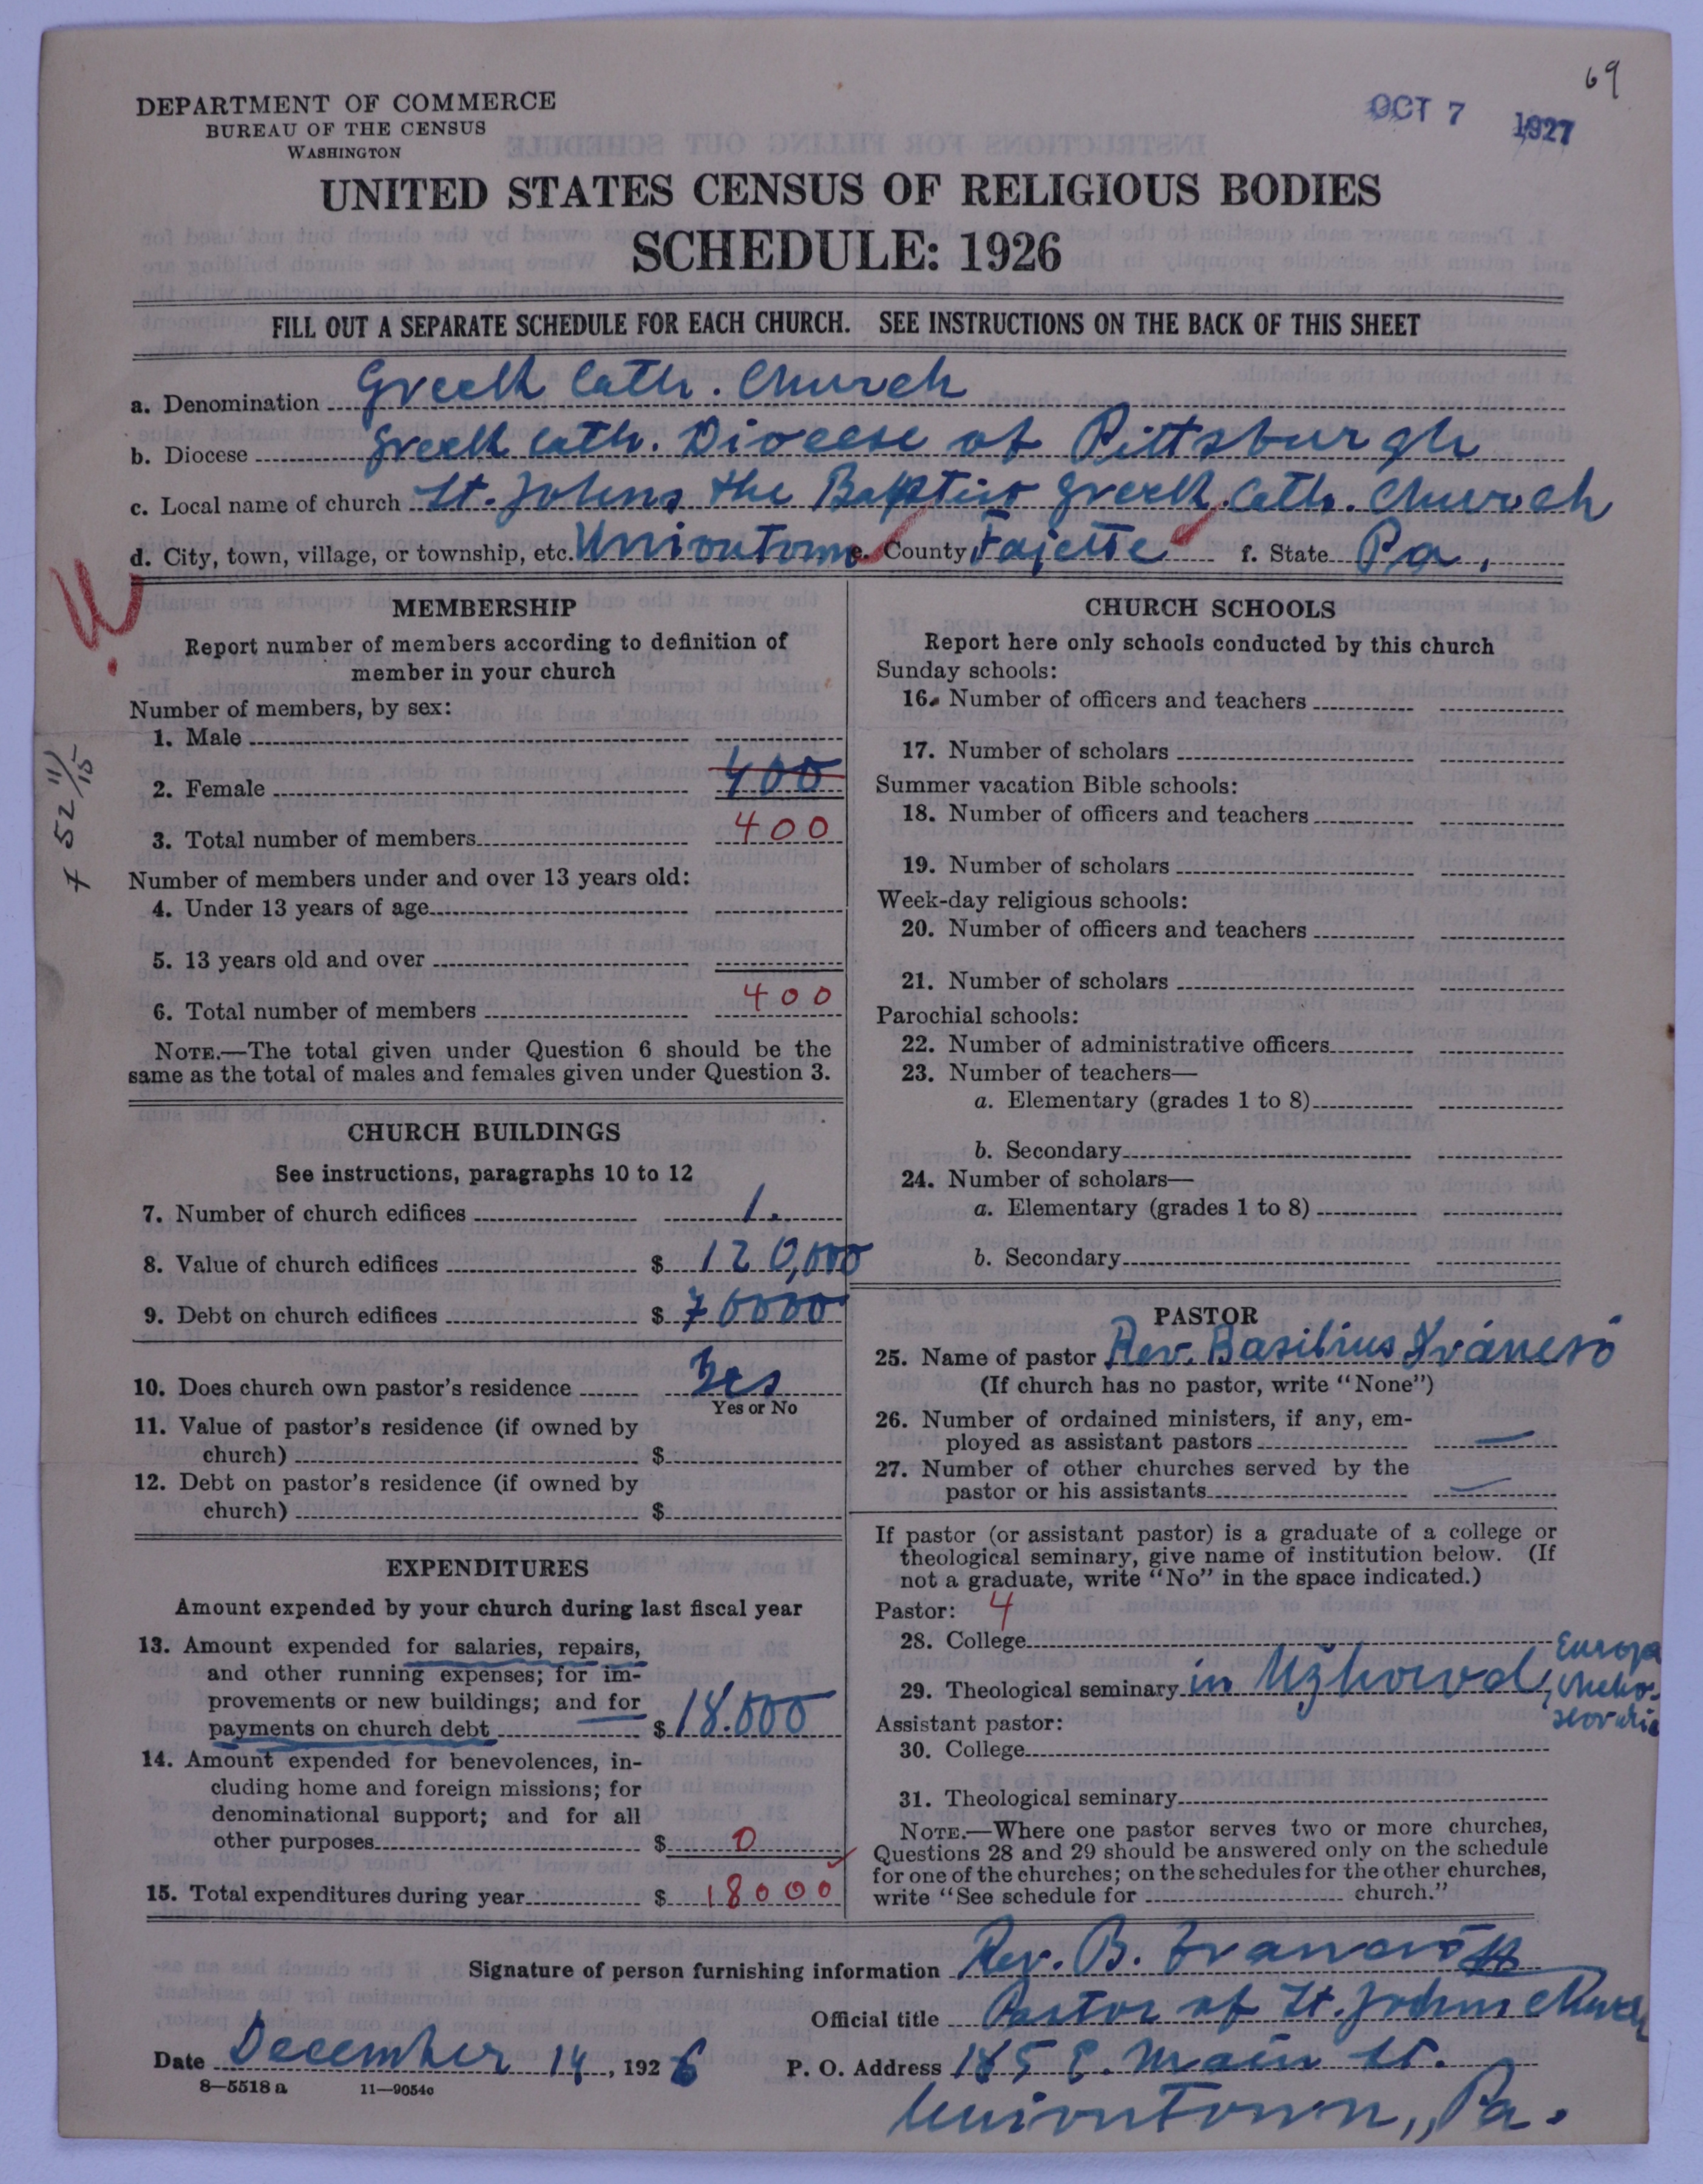 69
OCT 7 1927
DEPARTMENT OF COMMERCE
BUREAU OF THE CENSUS
WASHINGTON
UNITED STATES CENSUS OF RELIGIOUS BODIES
SCHEDULE: 1926
FILL OUT A SEPARATE SCHEDULE FOR EACH CHURCH. SEE INSTRUCTIONS ON THE BACK OF THIS SHEET
a. Denomination Greek Cath. Church
b. Diocese Greek Cath. Diocese of Pittsburgh
c. Local name of church St. Johns the Baptist Greek Cath. Church
d. City, town, village, or township, etc. Uniontown e. County Fajette f. State Pa.
7 52 11/15
MEMBERSHIP
Report number of members according to definition of
member in your church
Number of members, by sex:
1. Male
2. Female 400
3. Total number of members 400
Number of members under and over 13 years old:
4. Under 13 years of age
5. 13 years old and over
6. Total number of members 400
NOTE.—The total given under Question 6 should be the
same as the total of males and females given under Question 3.
CHURCH BUILDINGS
See instructions, paragraphs 10 to 12
7. Number of church edifices 1.
8. Value of church edifices $ 120,000
9. Debt on church edifices $ 70000
10. Does church own pastor's residence Yes
Yes or No
11. Value of pastor's residence (if owned by
church) $
12. Debt on pastor's residence (if owned by
church) $
EXPENDITURES
Amount expended by your church during last fiscal year
13. Amount expended for salaries, repairs,
and other running expenses; for im-
provements or new buildings; and for
payments on church debt $ 18.000
14. Amount expended for benevolences, in-
cluding home and foreign missions; for
denominational support; and for all
other purposes $ 0
15. Total expenditures during year $ 18000
CHURCH SCHOOLS
Report here only schools conducted by this church
Sunday schools:
16. Number of officers and teachers
17. Number of scholars
Summer vacation Bible schools:
18. Number of officers and teachers
19. Number of scholars
Week-day religious schools:
20. Number of officers and teachers
21. Number of scholars
Parochial schools:
22. Number of administrative officers
23. Number of teachers—
a. Elementary (grades 1 to 8)
b. Secondary
24. Number of scholars—
a. Elementary (grades 1 to 8)
b. Secondary
PASTOR
25. Name of pastor Rev. Basilius
(If church has no pastor, write "None")
26. Number of ordained ministers, if any, em-
ployed as assistant pastors —
27. Number of other churches served by the
pastor or his assistants —
If pastor (or assistant pastor) is a graduate of a college or
theological seminary, give name of institution below. (If
not a graduate, write "No" in the space indicated.)
Pastor: 4
28. College
29. Theological seminary in Užhorod, Europa
Assistant pastor:
30. College
31. Theological seminary
NOTE.—Where one pastor serves two or more churches,
Questions 28 and 29 should be answered only on the schedule
for one of the churches; on the schedules for the other churches,
write "See schedule for church."
Signature of person furnishing information Rev. B.
Official title Pastor of St. Johns Church
Date December 14, 1926 P. O. Address 185 E. Main St.
Uniontown, Pa.
8—5518 a 11—9054c